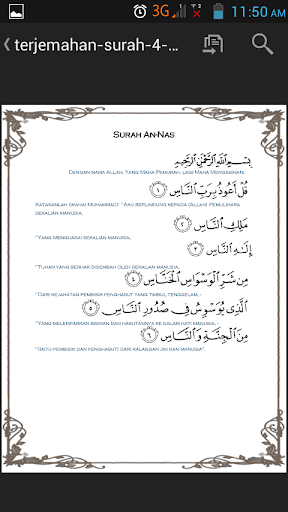 3G 11:50 AM
terjemahan-surah-4-...
SURAH AN-NAS
بِسْمِ اللَّهِ الرَّحْمَٰنِ الرَّحِيمِ
DENGAN NAMA ALLAH, YANG MAHA PEMURAH, LAGI MAHA MENGASIHANI.
قُلْ أَعُوذُ بِرَبِّ النَّاسِ ١
KATAKANLAH (WAHAI MUHAMMAD): "AKU BERLINDUNG KEPADA (ALLAH) PEMULIHARA
SEKALIAN MANUSIA.
مَلِكِ النَّاسِ ٢
"YANG MENGUASAI SEKALIAN MANUSIA,
إِلَٰهِ النَّاسِ ٣
"TUHAN YANG BERHAK DISEMBAH OLEH SEKALIAN MANUSIA,
مِن شَرِّ الْوَسْوَاسِ الْخَنَّاسِ ٤
"DARI KEJAHATAN PEMBISIK PENGHASUT YANG TIMBUL TENGGELAM,-
الَّذِي يُوَسْوِسُ فِي صُدُورِ النَّاسِ ٥
"YANG MELEMPARKAN BISIKAN DAN HASUTANNYA KE DALAM HATI MANUSIA,-
مِنَ الْجِنَّةِ وَالنَّاسِ ٦
"(IAITU PEMBISIK DAN PENGHASUT) DARI KALANGAN JIN DAN MANUSIA".